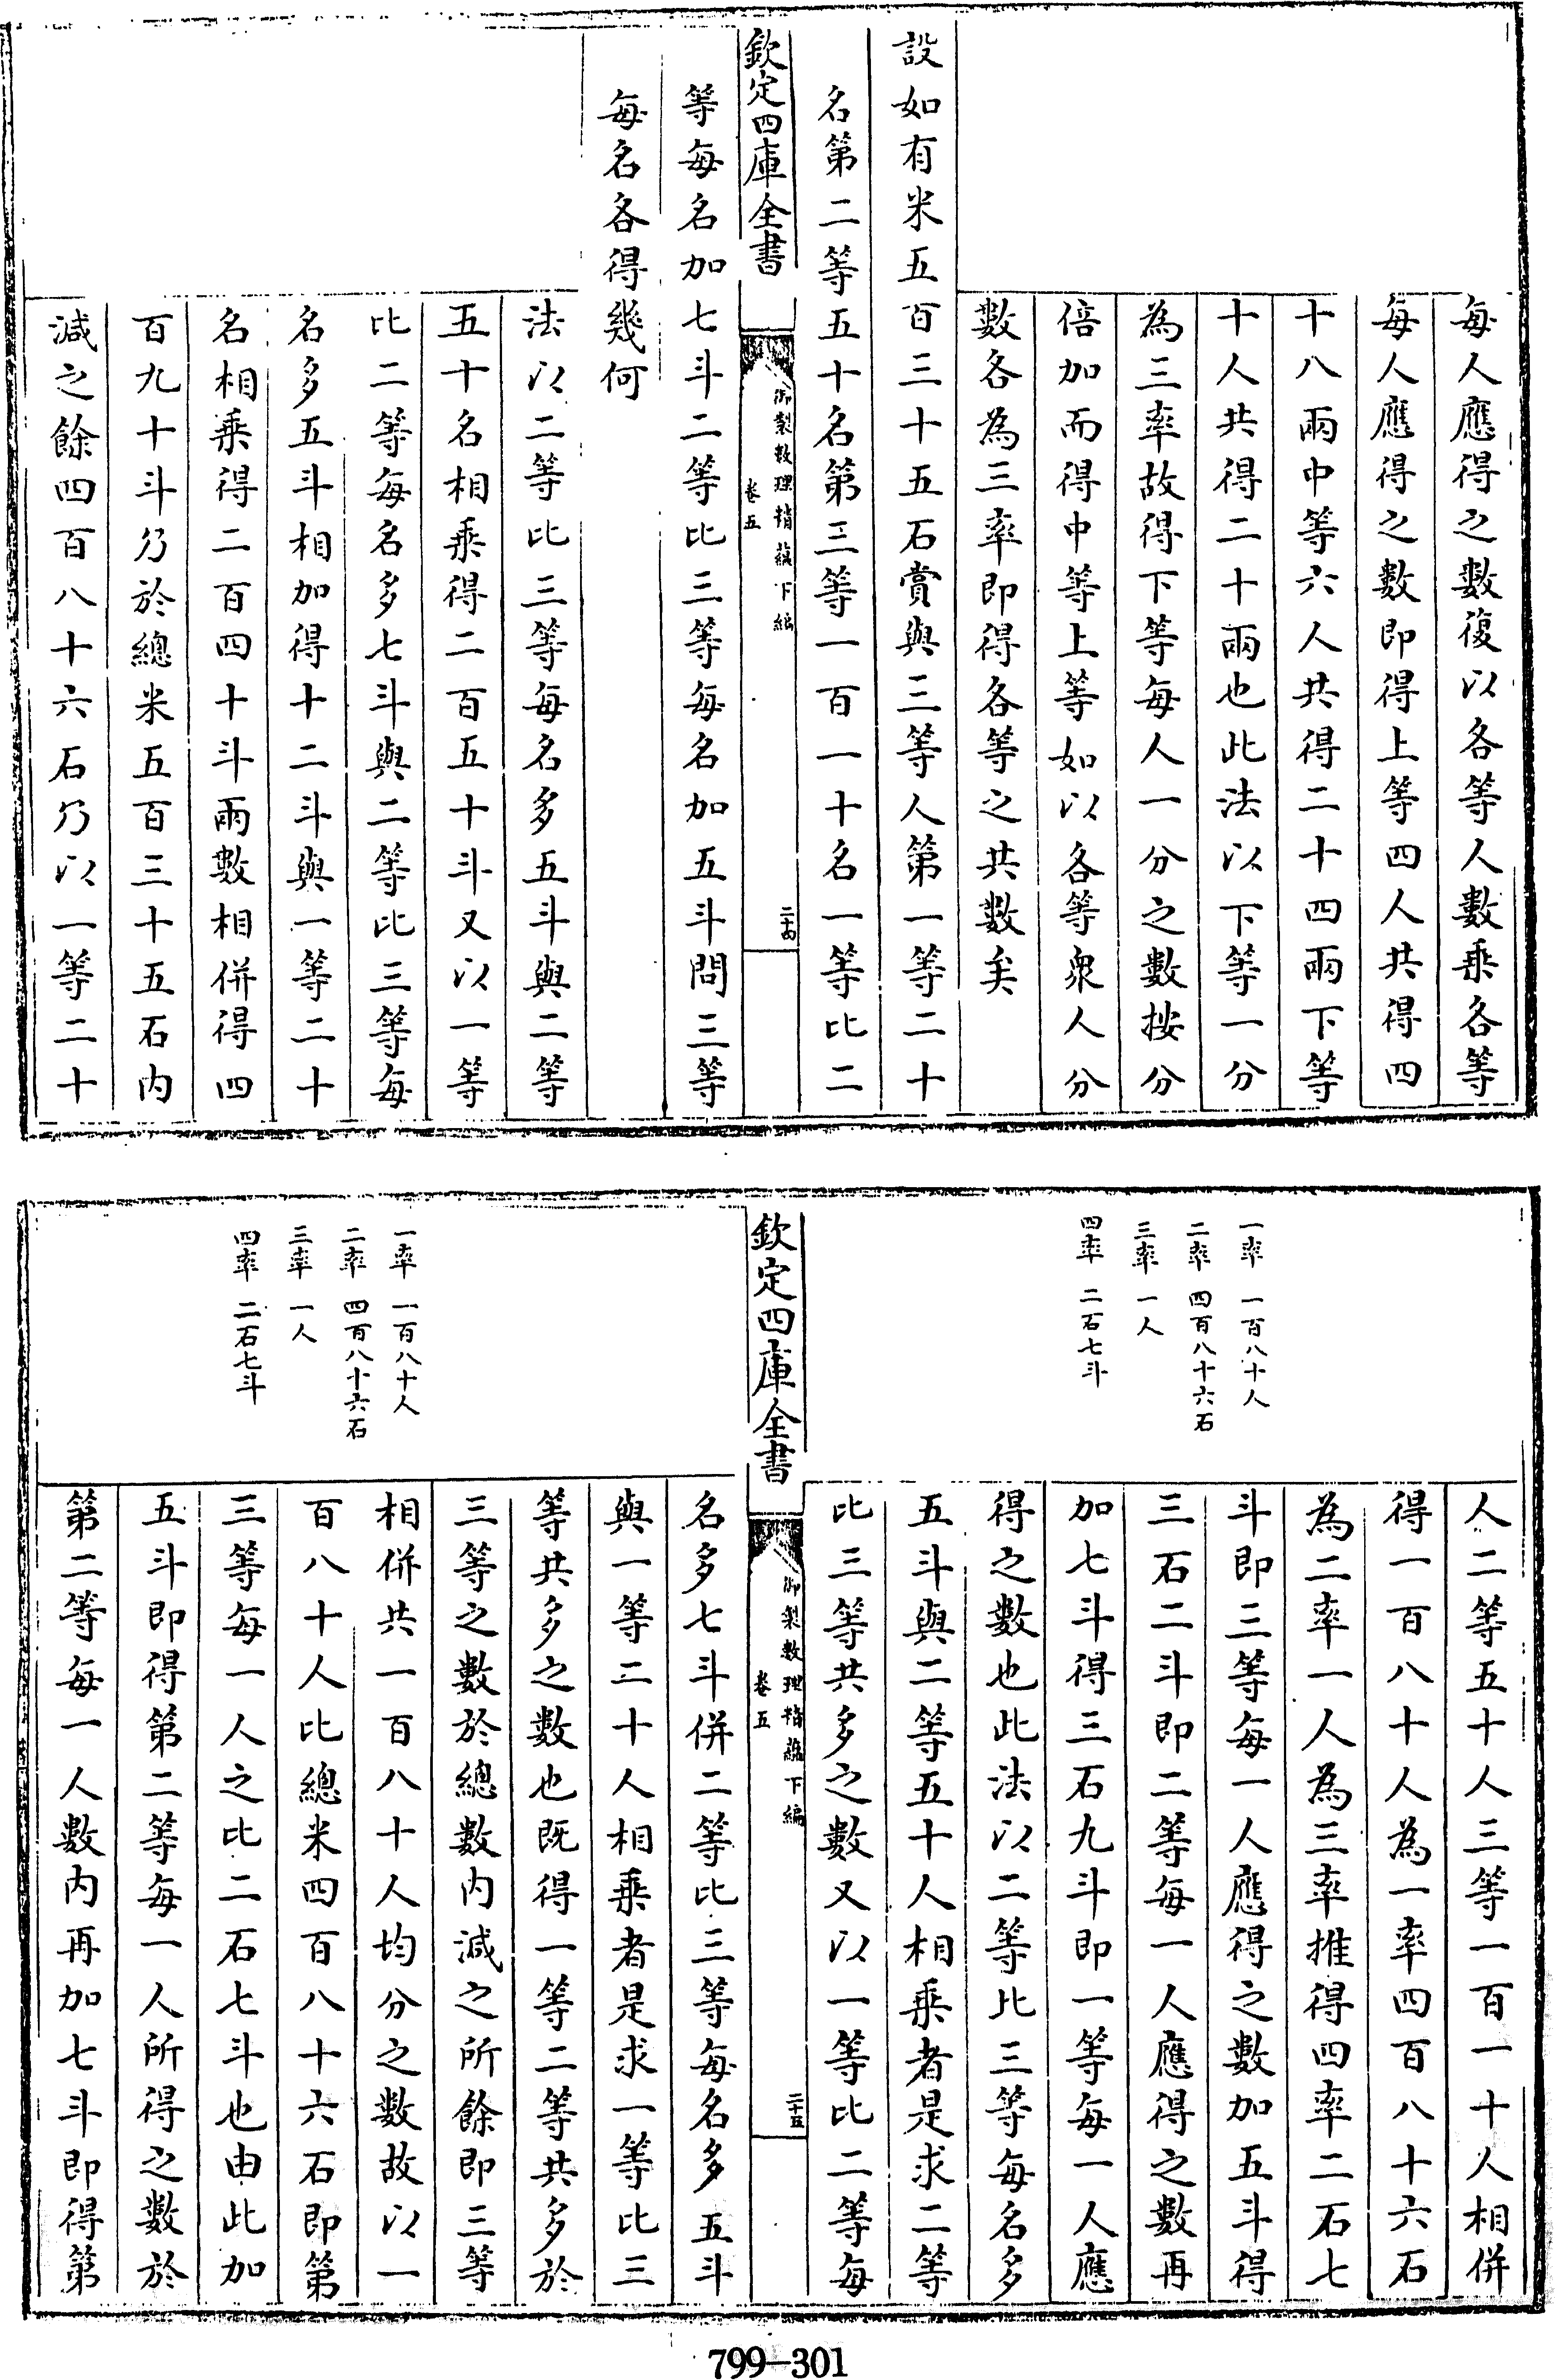 每人應得之數復以各等人數乘各等
每人應得之數即得上等四人共得四
十八兩中等六人共得二十四兩下等
十人共得二十兩也此法以下等一分
為三率故得下等每人一分之數按分
倍加而得中等上等如以各等衆人分
數各為三率即得各等之共數矣
設如有米五百三十五石賞與三等人第一等二十
名第二等五十名第三等一百一十名一等比二
欽定四庫全書
御製數理精蘊下編
卷五
二十四
等每名加七斗二等比三等每名加五斗問三等
每名各得幾何
法以二等比三等每名多五斗與二等
五十名相乘得二百五十斗又以一等
比二等每名多七斗與二等比三等每
名多五斗相加得十二斗與一等二十
名相乘得二百四十斗兩數相併得四
百九十斗乃於總米五百三十五石內
減之餘四百八十六石乃以一等二十
一率 一百八十人
二率 四百八十六石
三率 一人
四率 二石七斗
人二等五十人三等一百一十人相併
得一百八十人為一率四百八十六石
為二率一人為三率推得四率二石七
斗即三等每一人應得之數加五斗得
三石二斗即二等每一人應得之數再
加七斗得三石九斗即一等每一人應
得之數也此法以二等比三等每名多
五斗與二等五十人相乘者是求二等
比三等共多之數又以一等比二等每
欽定四庫全書
御製數理精蘊下編
卷五
二十五
一率 一百八十人
二率 四百八十六石
三率 一人
四率 二石七斗
名多七斗併二等比三等每名多五斗
與一等二十人相乘者是求一等比三
等共多之數也既得一等二等共多於
三等之數於總數內減之所餘即三等
相併共一百八十人均分之數故以一
百八十人比總米四百八十六石即第
三等每一人之比二石七斗也由此加
五斗即得第二等每一人所得之數於
第二等每一人數內再加七斗即得第
799-301